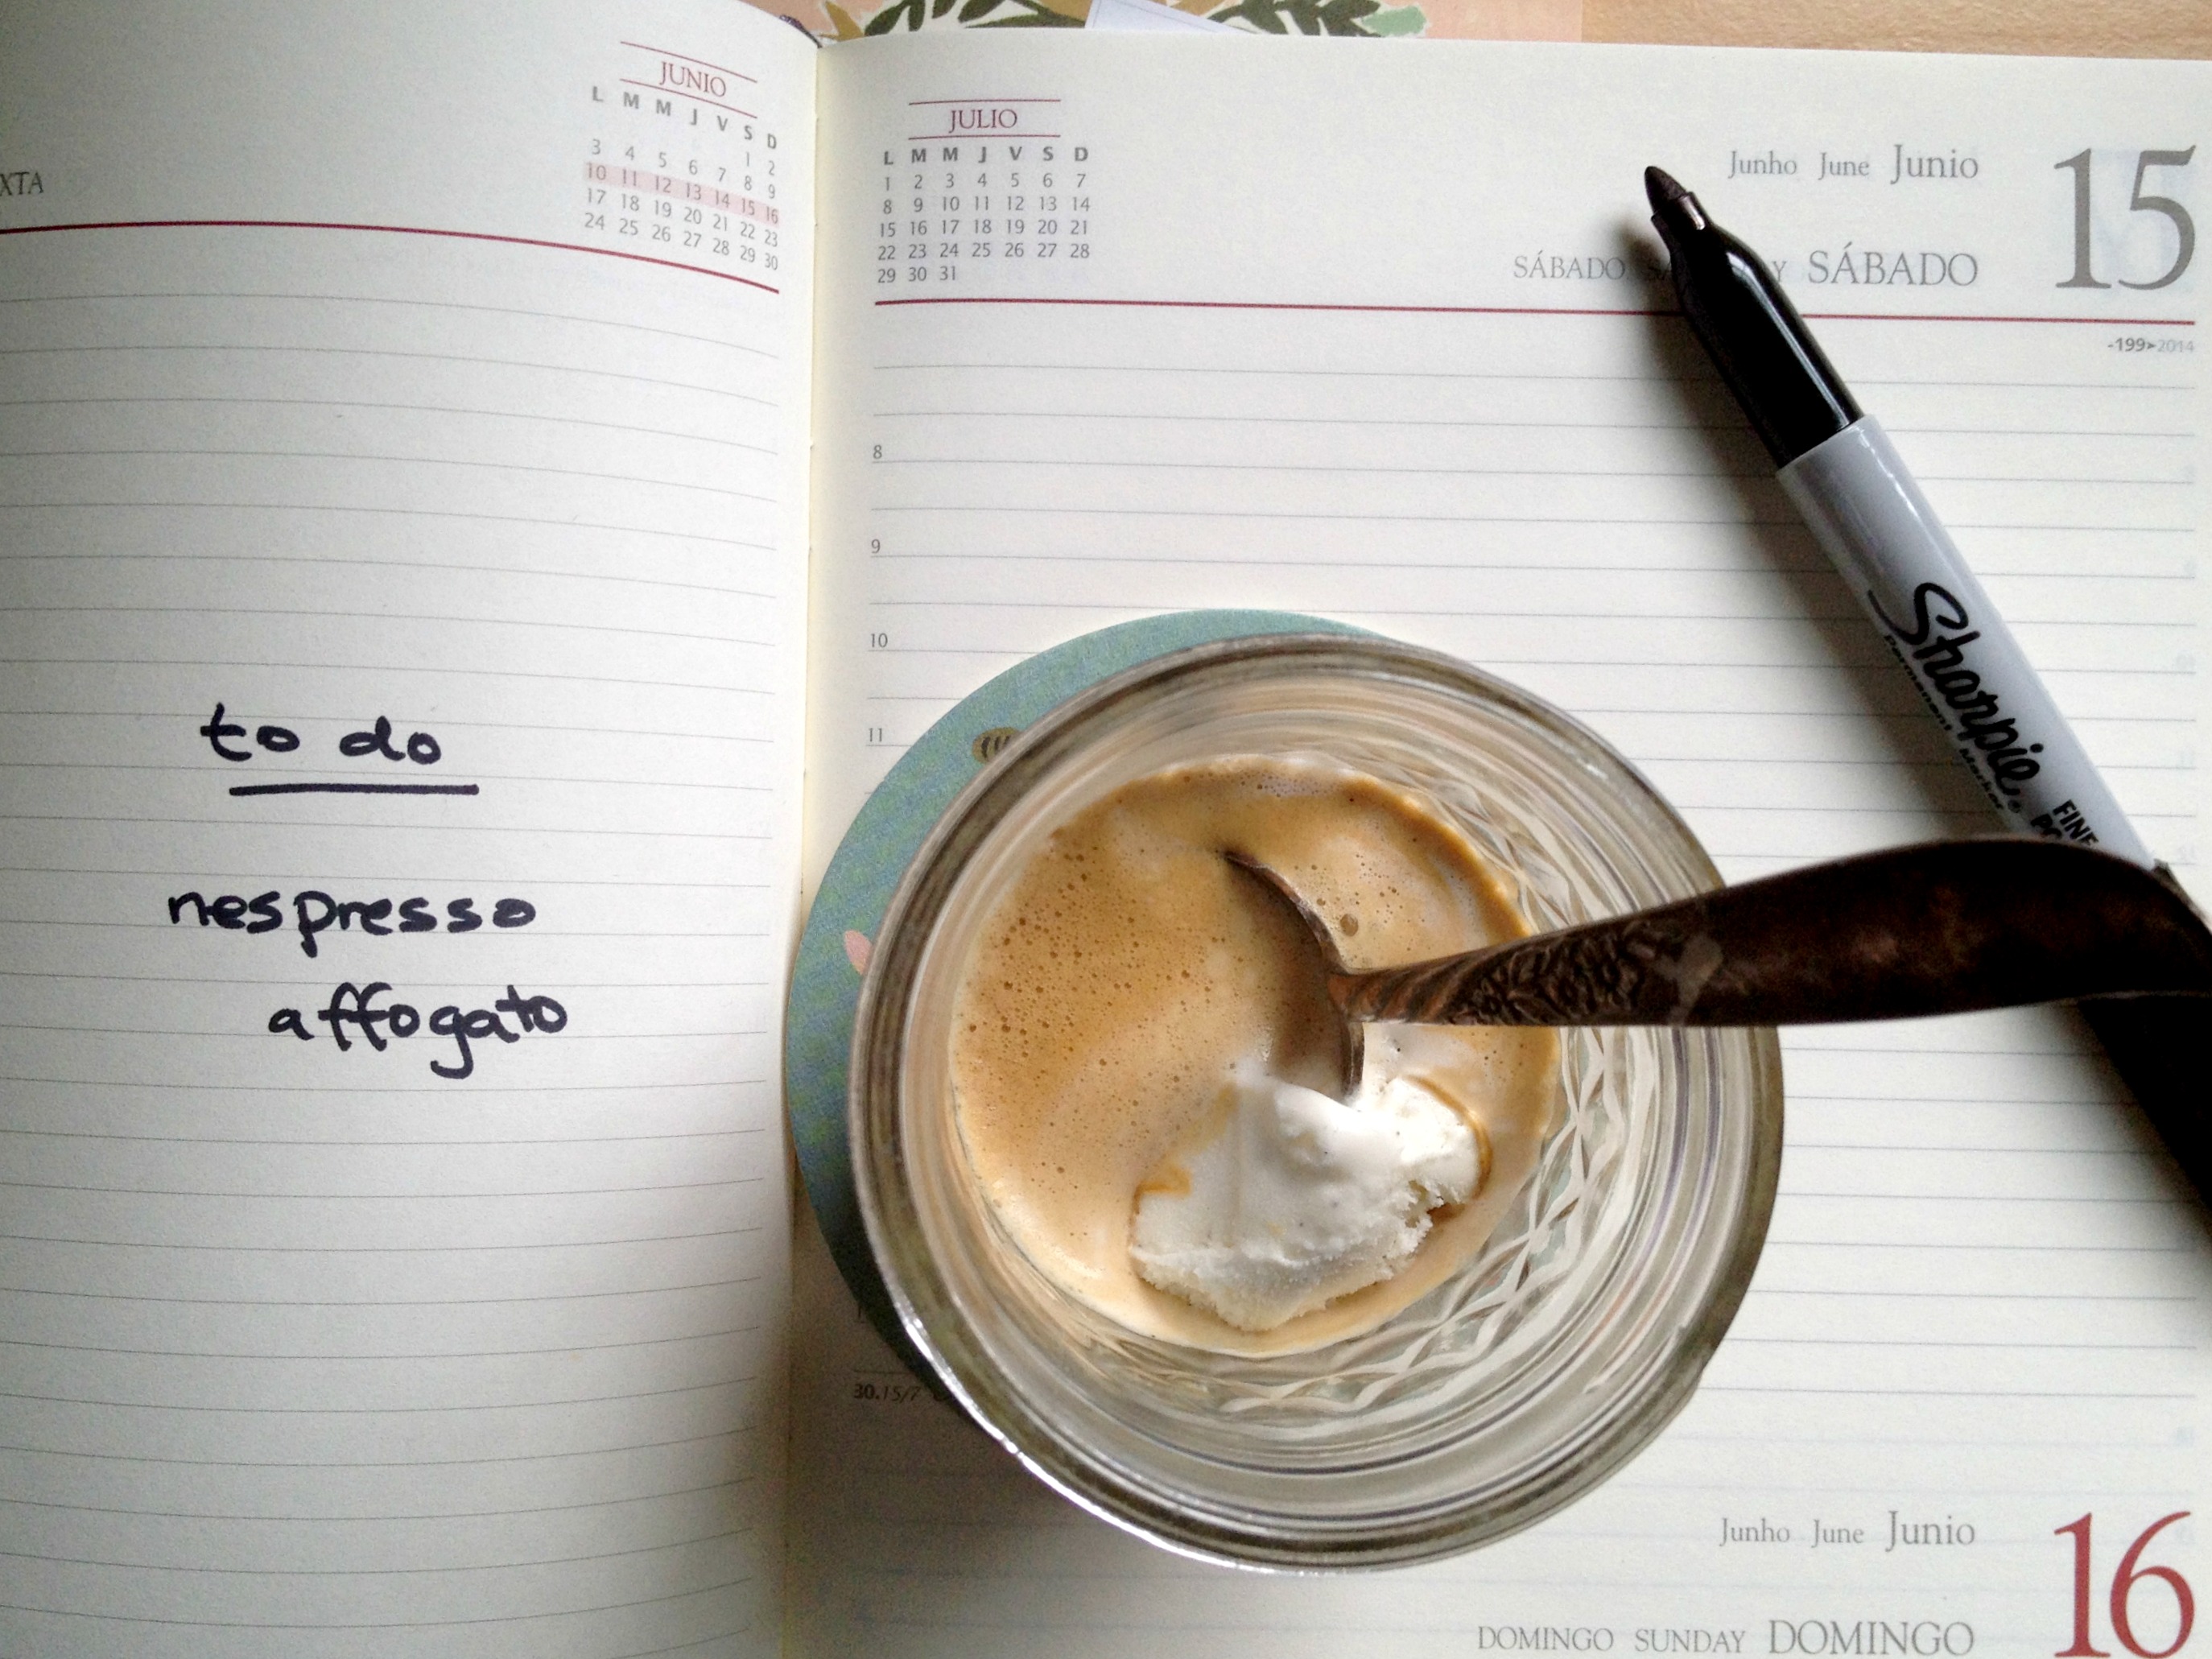 XTA
JUNIO
L M M J V S D
1 2
3 4 5 6 7 8 9
10 11 12 13 14 15 16
17 18 19 20 21 22 23
24 25 26 27 28 29 30
to do
nespresso
affogato
JULIO
L M M J V S D
1 2 3 4 5 6 7
8 9 10 11 12 13 14
15 16 17 18 19 20 21
22 23 24 25 26 27 28
29 30 31
Junho June Junio
SÁBADO SÁBADO
15
-199➤2014
8
9
10
11
30.15/7
Sharpie
Permanent Marker
FINE
Junho June Junio
DOMINGO SUNDAY DOMINGO
16